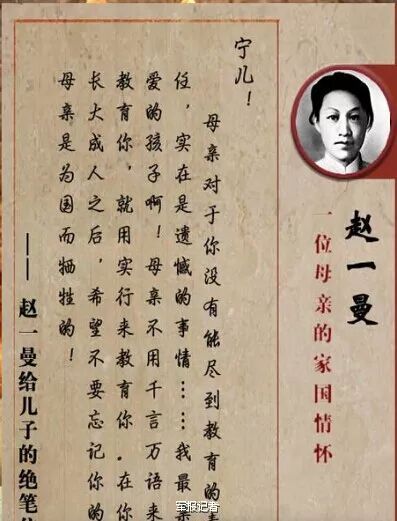 赵一曼
一位母亲的家国情怀
宁儿！
母亲对于你没有能尽到教育的
任，实在是遗憾的事情……我最亲
爱的孩子啊！母亲不用千言万语来
教育你，就用实行来教育你。在你
长大成人之后，希望不要忘记你的
母亲是为国而牺牲的！
——赵一曼给儿子的绝笔
军报记者